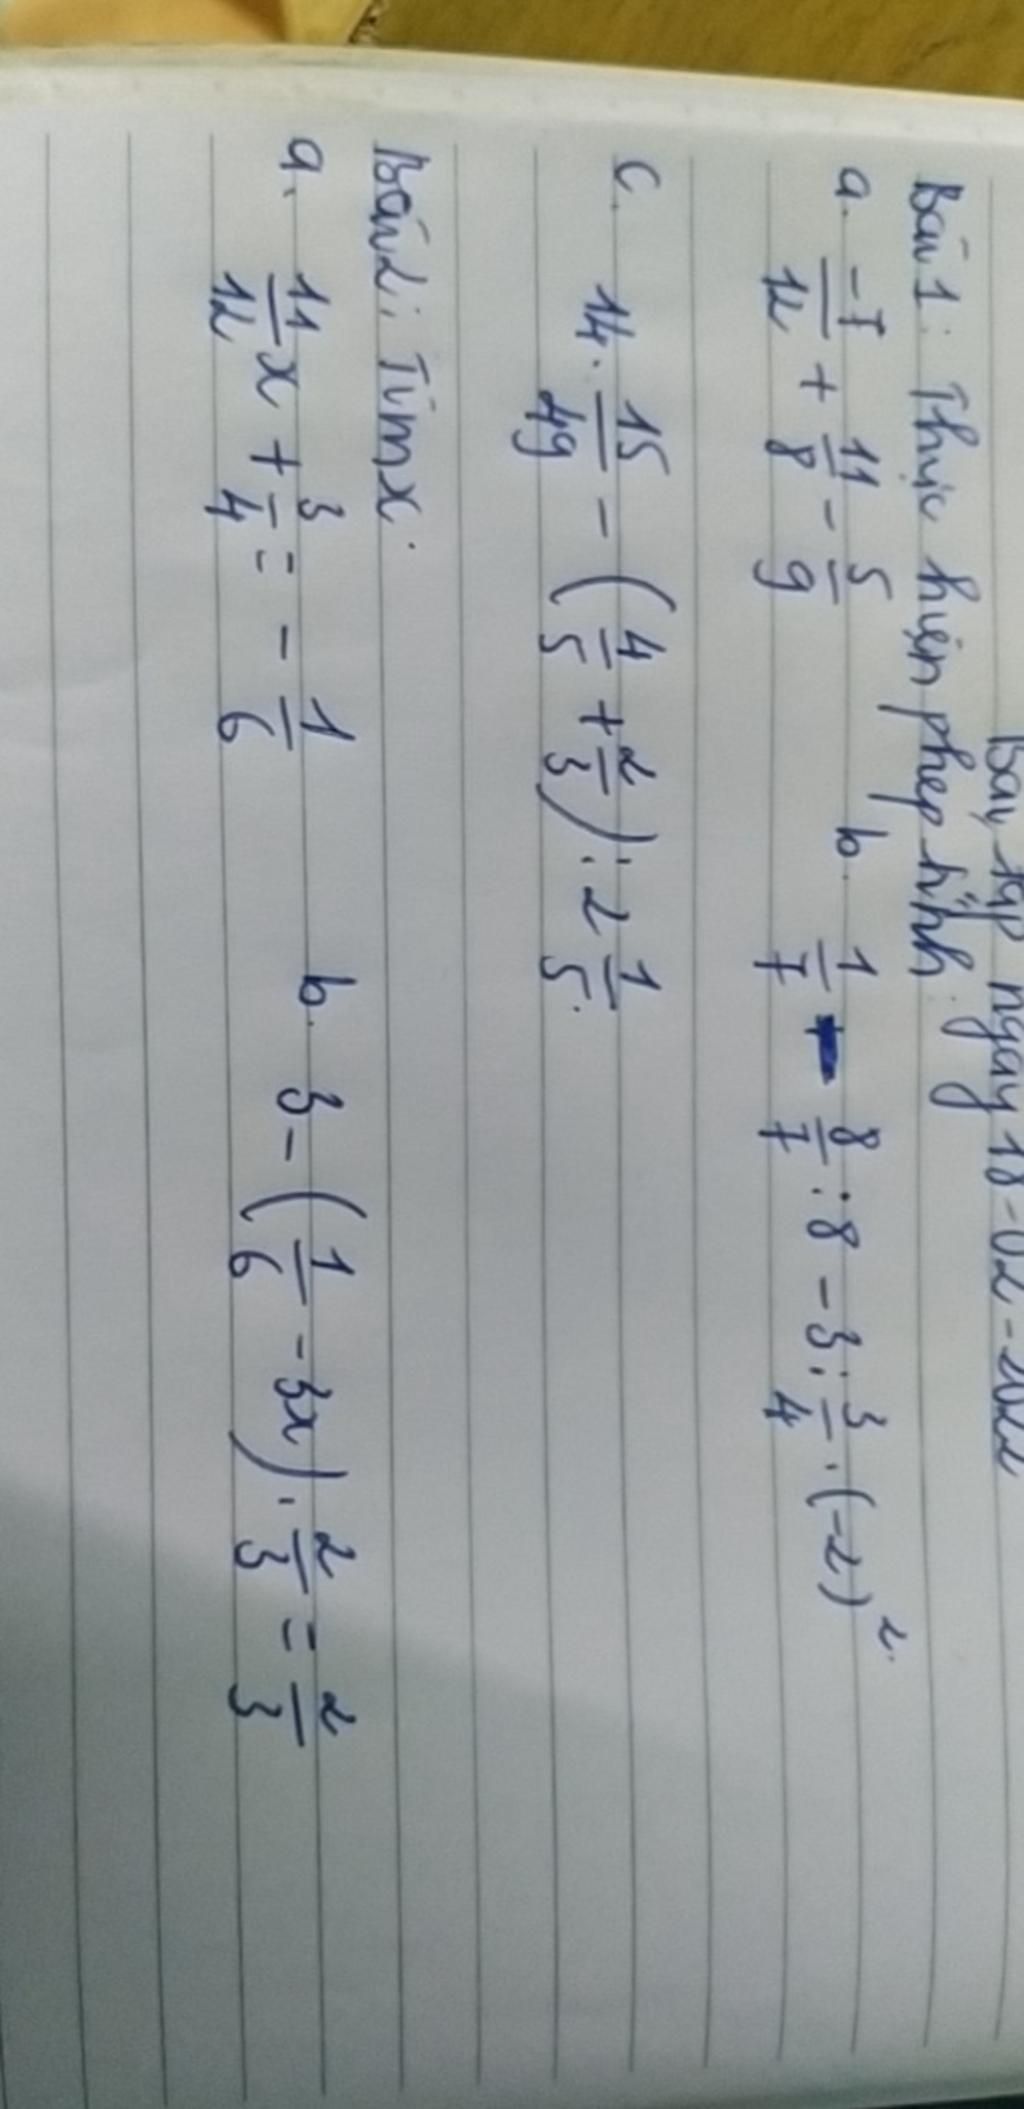 Bài tập ngày 18-02-2022
Bài 1: Thực hiện phép tính.
a. -7/12 + 11/8 - 5/9 b. 1/7 - 8/7 : 8 - 3 : 3/4 . (-2)².
c. 14. 15/49 - (4/5 + 2/3) : 2 1/5.
Bài 2: Tìm x.
a. 11/12 x + 3/4 = - 1/6 b. 3 - (1/6 - 3x) . 2/3 = 2/3